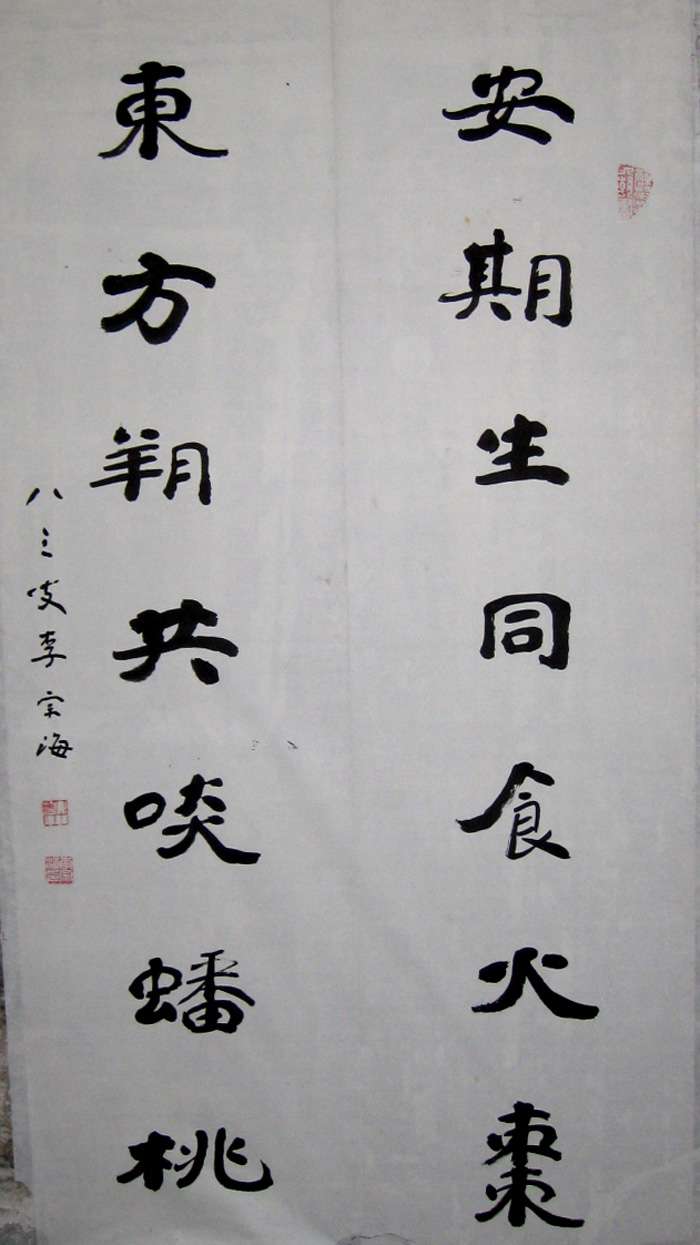 安期生同食火棗
東方朔共啖蟠桃
八三叟李宗海